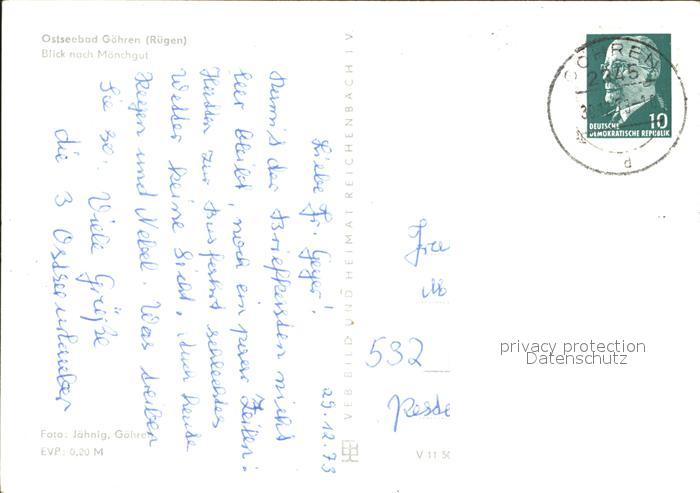 Ostseebad Göhren (Rügen)
Blick nach Mönchgut
29.12.73
Liebe Fr. Geyer!
Damit der Briefkasten nicht
leer bleibt, noch ein paar Zeilen.
Hatten zur Busfahrt schlechtes
Wetter keine Sicht, auch heute
Regen und Nebel. Was treiben
Sie so. Viele Grüße
die 3 Ostseeurlauber
Foto: Jähnig, Göhren
EVP: 0,20 M
VEB BILD UND HEIMAT REICHENBACH I V
V 11 50
GÖHREN
2345
d
10
DEUTSCHE
DEMOKRATISCHE REPUBLIK
Frau
532
privacy protection
Datenschutz